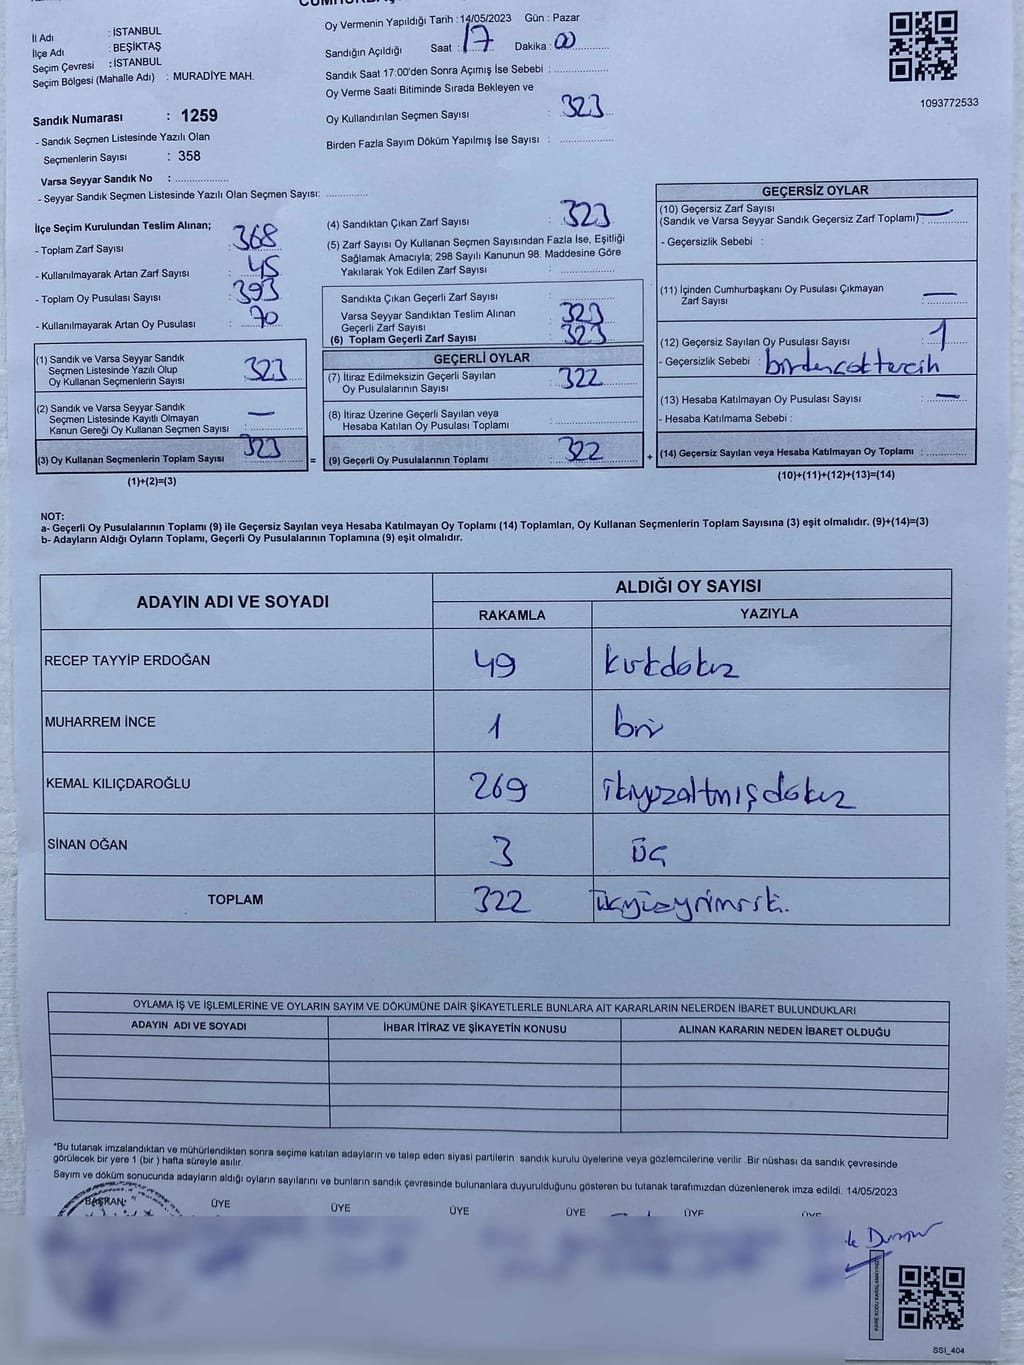 İl Adı : İSTANBUL
İlçe Adı : BEŞİKTAŞ
Seçim Çevresi : İSTANBUL
Seçim Bölgesi (Mahalle Adı) : MURADİYE MAH.
Sandık Numarası : 1259
- Sandık Seçmen Listesinde Yazılı Olan
Seçmenlerin Sayısı : 358
Varsa Seyyar Sandık No :
- Seyyar Sandık Seçmen Listesinde Yazılı Olan Seçmen Sayısı:
Oy Vermenin Yapıldığı Tarih : 14/05/2023 Gün : Pazar
Sandığın Açıldığı Saat : 17 Dakika : 00
Sandık Saat 17:00'den Sonra Açımış İse Sebebi :
Oy Verme Saati Bitiminde Sırada Bekleyen ve
Oy Kullandırılan Seçmen Sayısı : 323
Birden Fazla Sayım Döküm Yapılmış İse Sayısı :
1093772533
İlçe Seçim Kurulundan Teslim Alınan;
- Toplam Zarf Sayısı : 368
- Kullanılmayarak Artan Zarf Sayısı : 45
- Toplam Oy Pusulası Sayısı : 393
- Kullanılmayarak Artan Oy Pusulası : 70
(1) Sandık ve Varsa Seyyar Sandık
Seçmen Listesinde Yazılı Olup
Oy Kullanan Seçmenlerin Sayısı : 323
(2) Sandık ve Varsa Seyyar Sandık
Seçmen Listesinde Kayıtlı Olmayan
Kanun Gereği Oy Kullanan Seçmen Sayısı : —
(3) Oy Kullanan Seçmenlerin Toplam Sayısı : 323
(1)+(2)=(3)
(4) Sandıktan Çıkan Zarf Sayısı : 323
(5) Zarf Sayısı Oy Kullanan Seçmen Sayısından Fazla İse, Eşitliği
Sağlamak Amacıyla; 298 Sayılı Kanunun 98. Maddesine Göre
Yakılarak Yok Edilen Zarf Sayısı :
Sandıkta Çıkan Geçerli Zarf Sayısı :
Varsa Seyyar Sandıktan Teslim Alınan
Geçerli Zarf Sayısı : 323
(6) Toplam Geçerli Zarf Sayısı : 323
GEÇERLİ OYLAR
(7) İtiraz Edilmeksizin Geçerli Sayılan
Oy Pusulalarının Sayısı : 322
(8) İtiraz Üzerine Geçerli Sayılan veya
Hesaba Katılan Oy Pusulası Toplamı :
= (9) Geçerli Oy Pusulalarının Toplamı : 322 +
GEÇERSİZ OYLAR
(10) Geçersiz Zarf Sayısı
(Sandık ve Varsa Seyyar Sandık Geçersiz Zarf Toplamı) : —
- Geçersizlik Sebebi :
(11) İçinden Cumhurbaşkanı Oy Pusulası Çıkmayan
Zarf Sayısı : —
(12) Geçersiz Sayılan Oy Pusulası Sayısı : 1
- Geçersizlik Sebebi : birden çok tercih
(13) Hesaba Katılmayan Oy Pusulası Sayısı : —
- Hesaba Katılmama Sebebi :
(14) Geçersiz Sayılan veya Hesaba Katılmayan Oy Toplamı :
(10)+(11)+(12)+(13)=(14)
NOT:
a- Geçerli Oy Pusulalarının Toplamı (9) ile Geçersiz Sayılan veya Hesaba Katılmayan Oy Toplamı (14) Toplamları, Oy Kullanan Seçmenlerin Toplam Sayısına (3) eşit olmalıdır. (9)+(14)=(3)
b- Adayların Aldığı Oyların Toplamı, Geçerli Oy Pusulalarının Toplamına (9) eşit olmalıdır.
ADAYIN ADI VE SOYADI
ALDIĞI OY SAYISI
RAKAMLA YAZIYLA
RECEP TAYYİP ERDOĞAN 49 kırkdokuz
MUHARREM İNCE 1 bir
KEMAL KILIÇDAROĞLU 269 ikiyüzaltmışdokuz
SİNAN OĞAN 3 üç
TOPLAM 322 üçyüzyirmiiki.
OYLAMA İŞ VE İŞLEMLERİNE VE OYLARIN SAYIM VE DÖKÜMÜNE DAİR ŞİKAYETLERLE BUNLARA AİT KARARLARIN NELERDEN İBARET BULUNDUKLARI
ADAYIN ADI VE SOYADI İHBAR İTİRAZ VE ŞİKAYETİN KONUSU ALINAN KARARIN NEDEN İBARET OLDUĞU
*Bu tutanak imzalandıktan ve mühürlendikten sonra seçime katılan adayların ve talep eden siyasi partilerin sandık kurulu üyelerine veya gözlemcilerine verilir .Bir nüshası da sandık çevresinde
görülecek bir yere 1 (bir ) hafta süreyle asılır.
Sayım ve döküm sonucunda adayların aldığı oyların sayılarını ve bunların sandık çevresinde bulunanlara duyurulduğunu gösteren bu tutanak tarafımızdan düzenlenerek imza edildi. 14/05/2023
BAŞKAN ÜYE ÜYE ÜYE ÜYE ÜYE
SSI_404